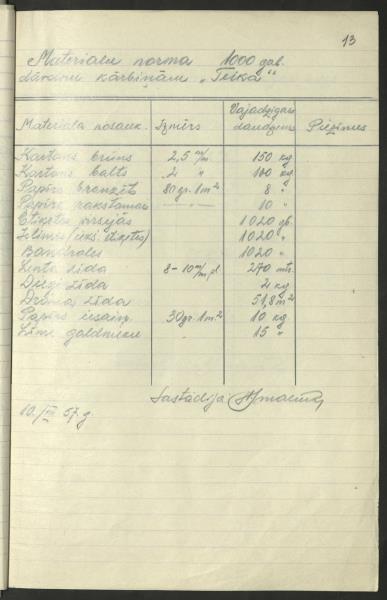 13
Materialu norma 1000 gab.
dāvanu kārbiņām "Teika"
Materiala nosauk. Izmērs Vajadzīgais daudzums Piezīmes
Kartons brūns 2,5 m/m 150 kg
Kartons balts 2 " 100 kg
Papīrs bronzēts 80 gr. 1m² 8 "
Papīrs rakstāmais — " — 10 "
Etiķetes virsējās 1020 gb.
Ielīmes (ieks. etiķetes) 1020 "
Banderoles 1020 "
Lenta zīda 8-10 m/m pl. 270 mtr.
Diegi zīda 2 kg
Drāna zīda 51,8 m²
Papīrs iesaiņ. 30 gr. 1m² 10 kg
Līme galdnieku 15 "
Sastādīja
10./III 57.g